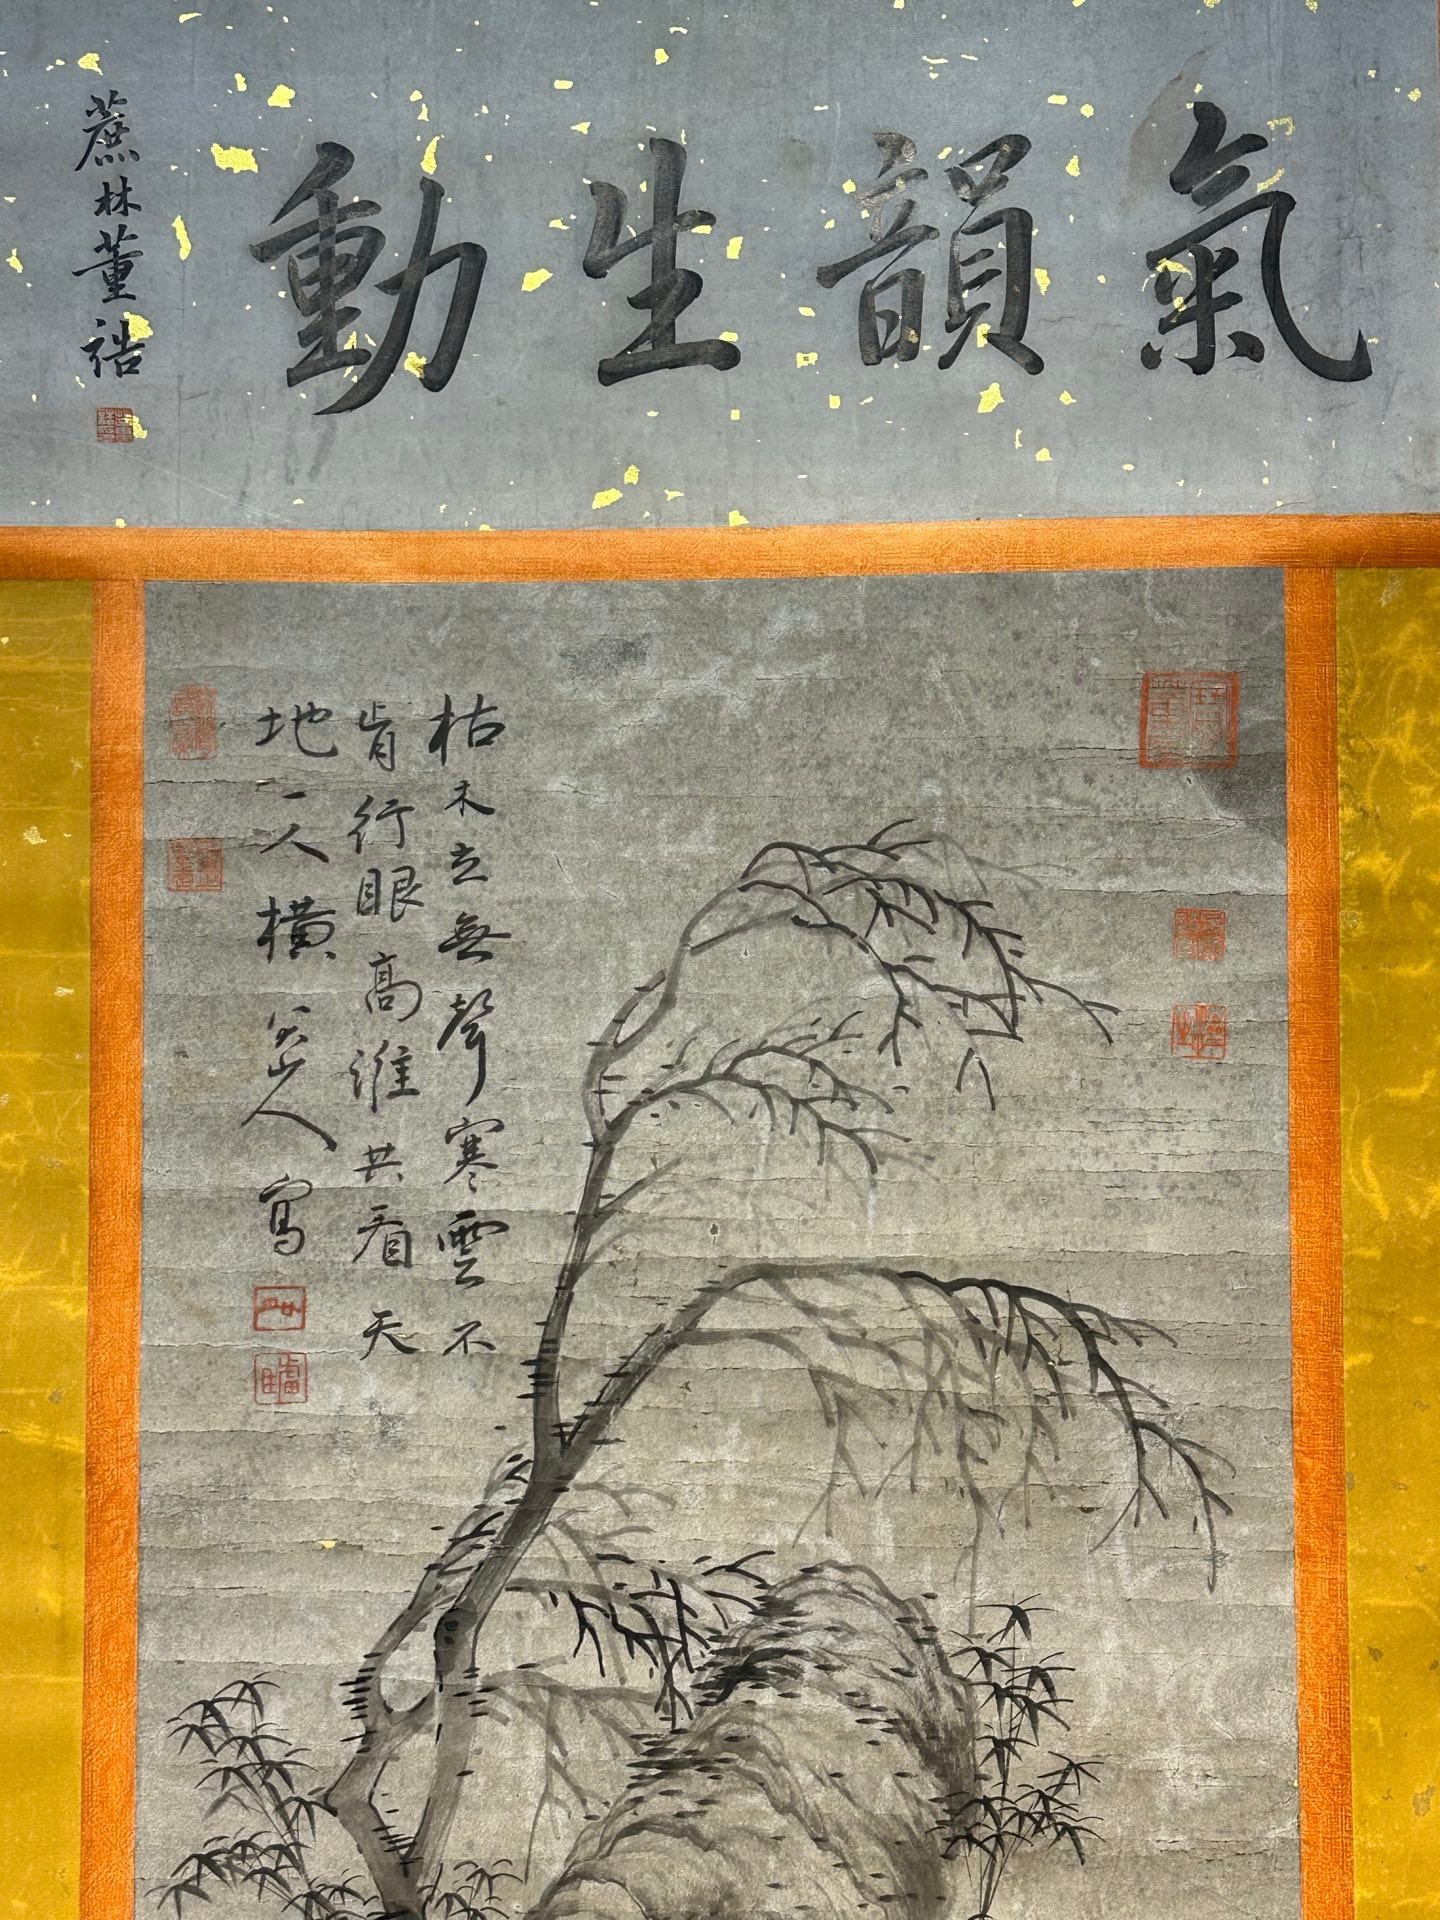 氣韻生動
蔗林董誥
枯木立無聲寒雲不
肯行眼高誰共看天
地一人橫 八大山人寫